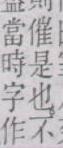 則催是也。不
當時字作